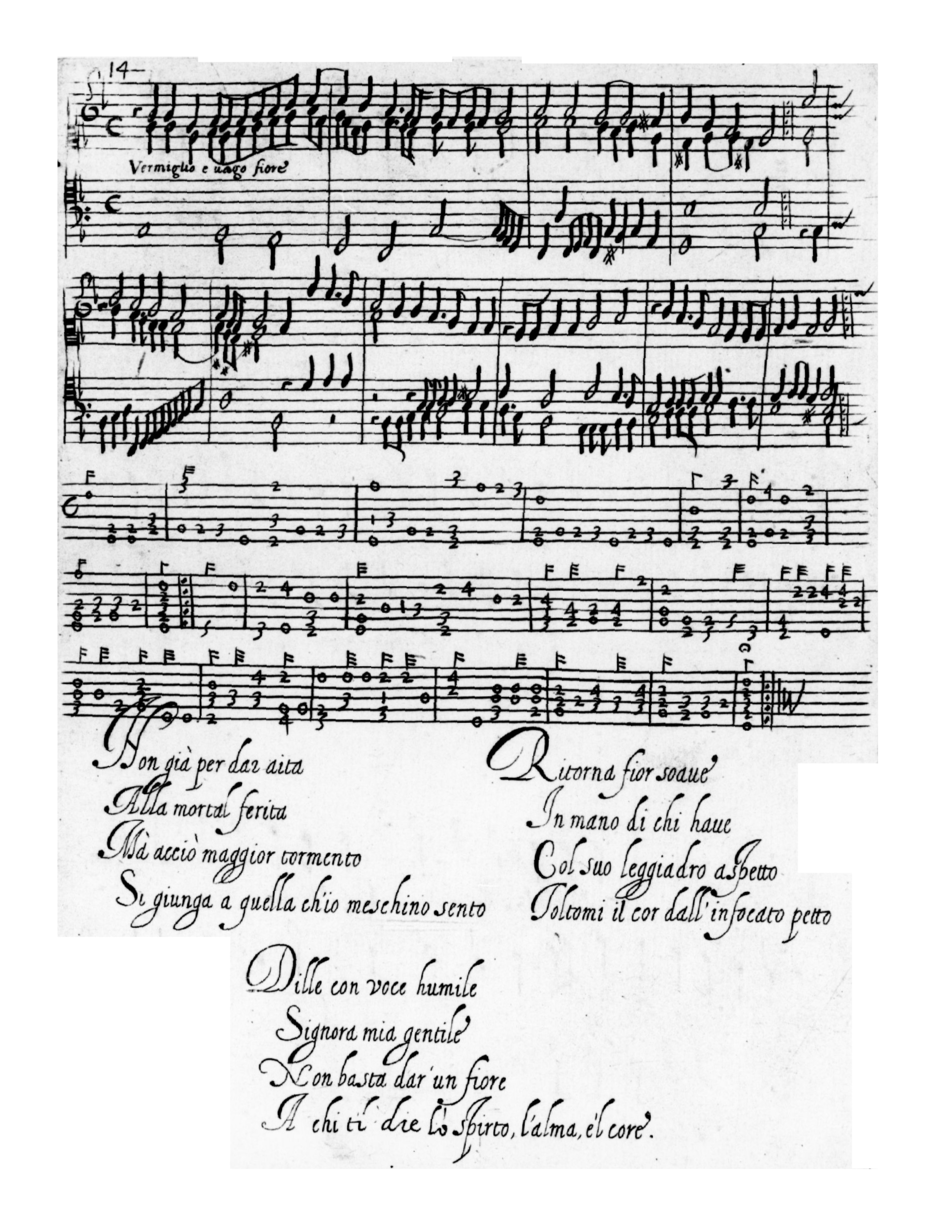 14
Vermiglio e uago fiore
Non già per dar aita
Alla mortal ferita
Mà acciò maggior tormento
Si giunga a quella ch'io meschino sento
Ritorna fior soaue
In mano di chi haue
Col suo leggiadro aspetto
Toltomi il cor dall'infocato petto
Dille con voce humile
Signora mia gentile
Non basta dar' un fiore
A chi ti die lo spirto, l'alma, e'l core.